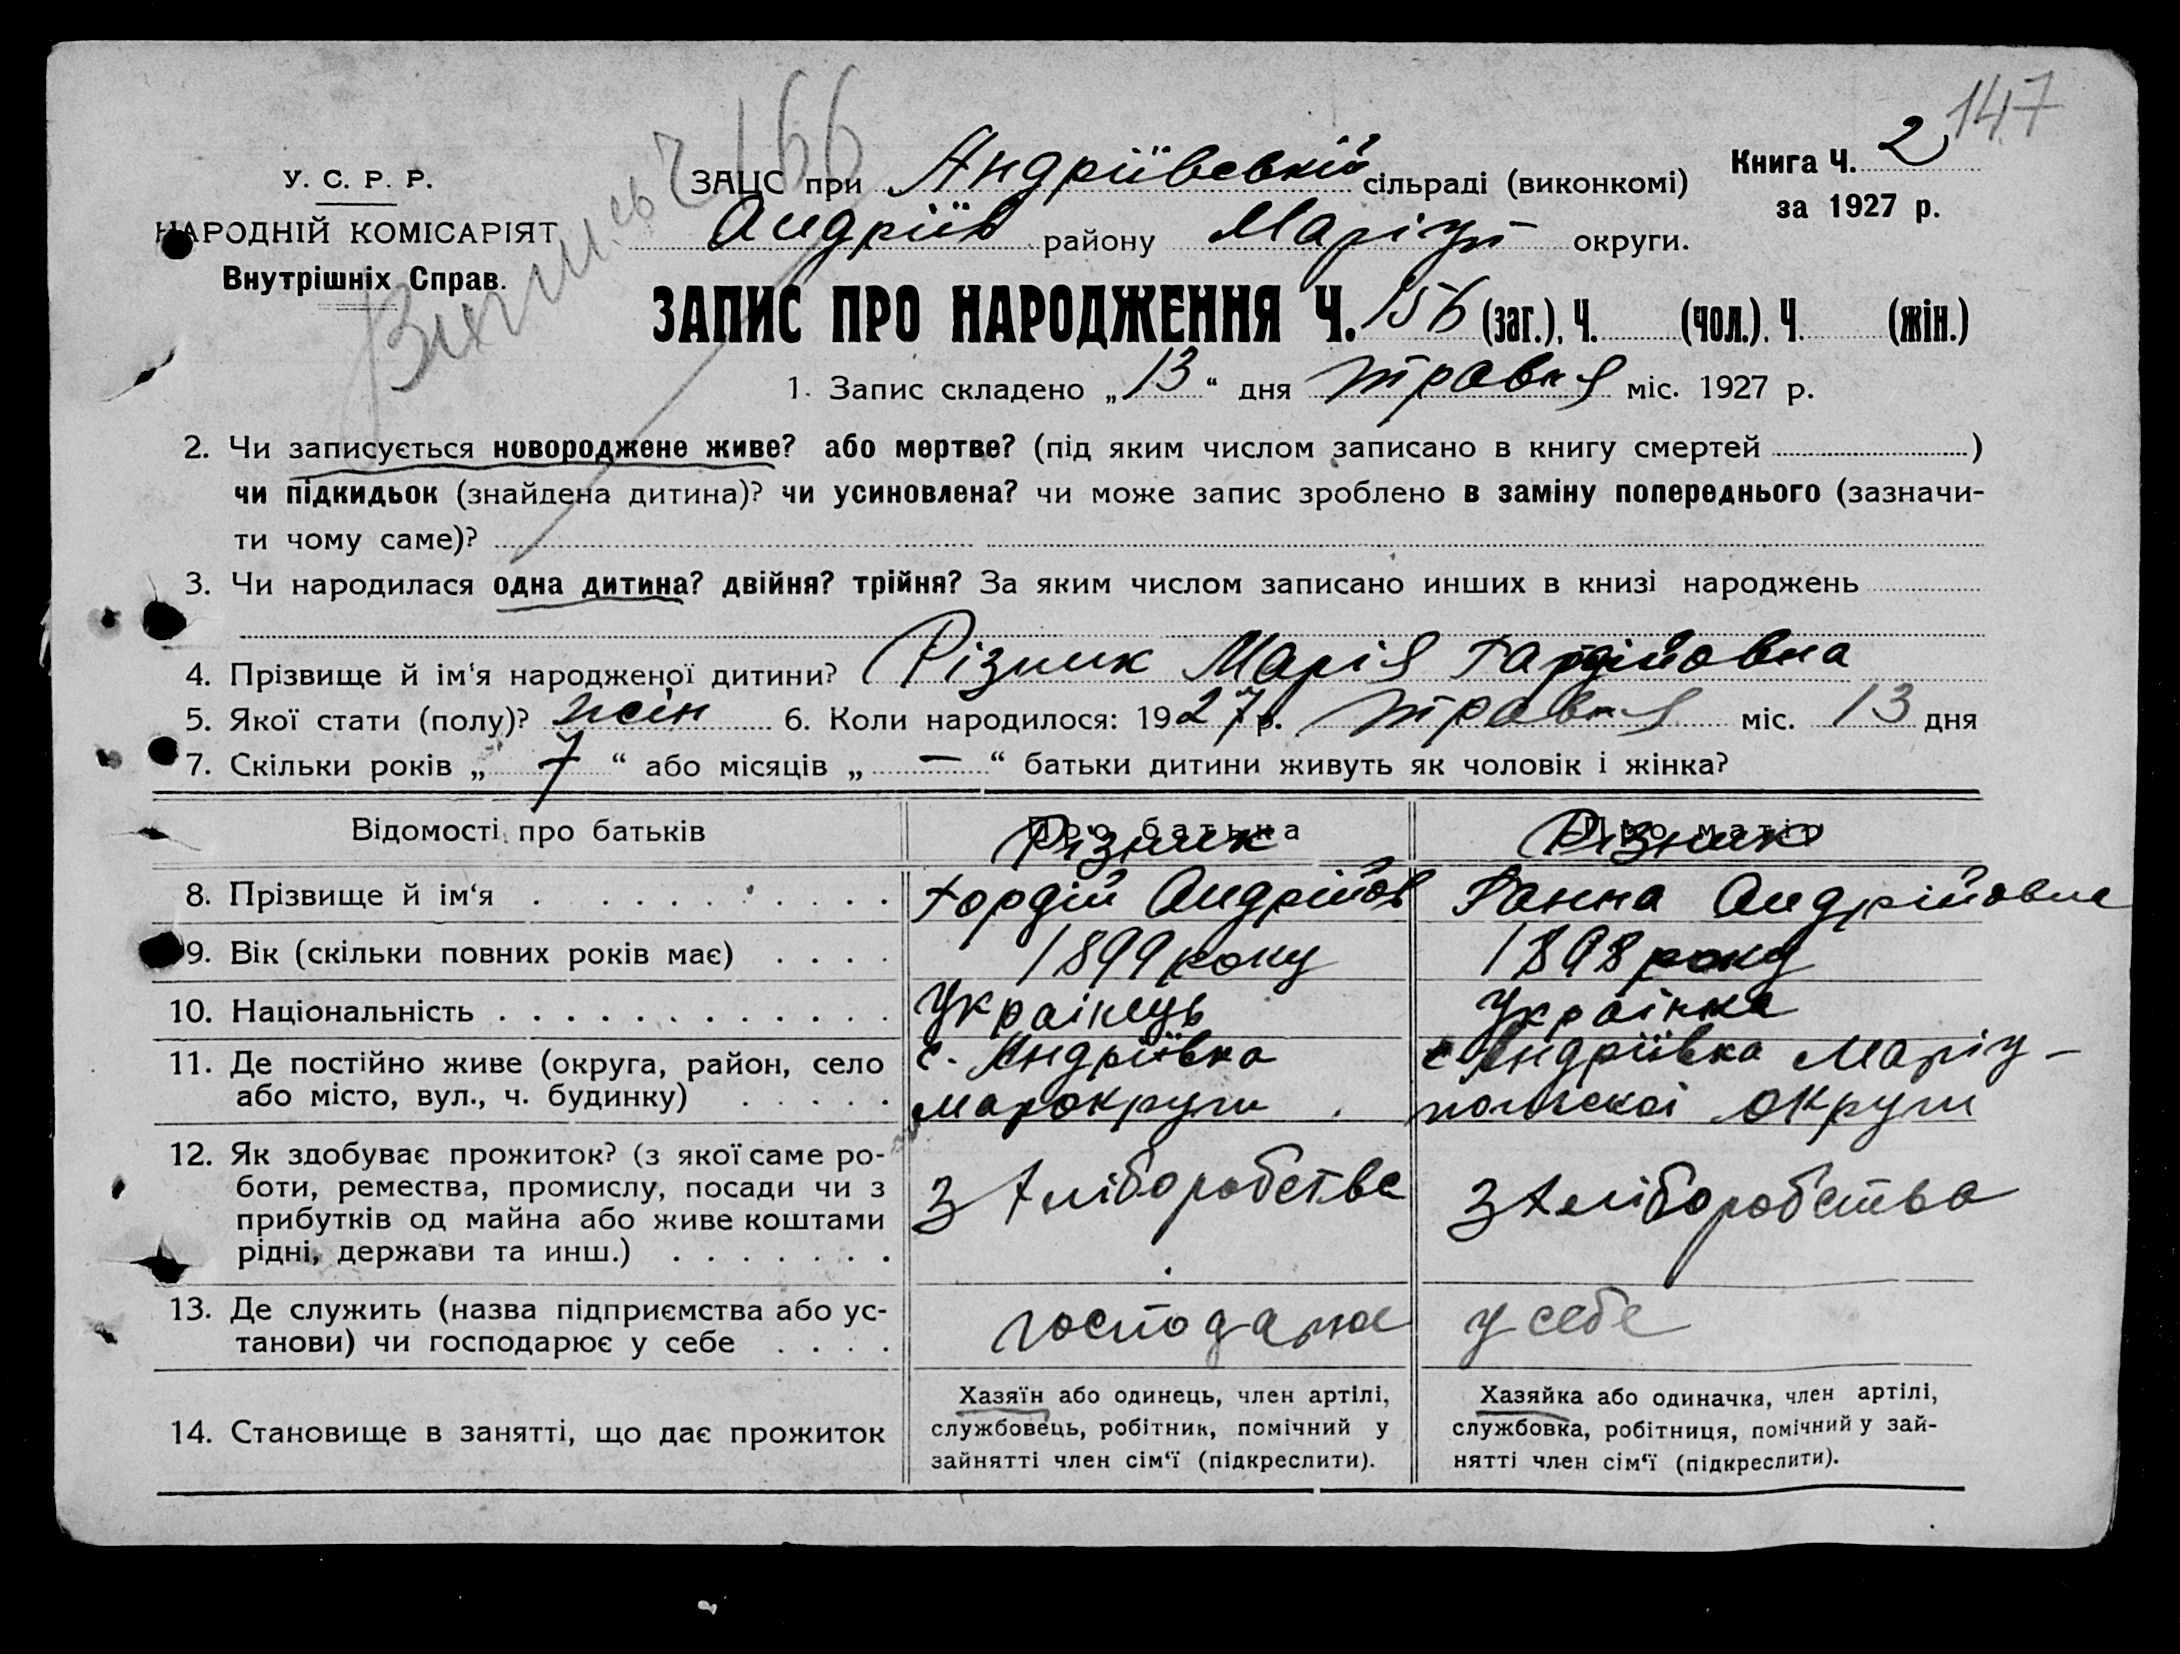 147
Вихтишсь Ч 166
У. С. Р. Р.
НАРОДНІЙ КОМІСАРІЯТ
Внутрішніх Справ.
ЗАЦС при Андріївській сільраді (виконкомі)
Книга Ч. 2
за 1927 р.
Андріїв району Маріуп округи.
ЗАПИС ПРО НАРОДЖЕННЯ Ч. 156 (заг.), Ч. (чол.). Ч. (жін.)
1. Запис складено „13“ дня травня міс. 1927 р.
2. Чи записується новороджене живе? або мертве? (під яким числом записано в книгу смертей )
чи підкидьок (знайдена дитина)? чи усиновлена? чи може запис зроблено в заміну попереднього (зазначи-
ти чому саме)?
3. Чи народилася одна дитина? двійня? трійня? За яким числом записано инших в книзі народжень
4. Прізвище й ім‘я народженої дитини? Різник Марія Гордійовна
5. Якої стати (полу)? жін 6. Коли народилося: 1927 р. травня міс. 13 дня
7. Скільки років „ 7 “ або місяців „ — “ батьки дитини живуть як чоловік і жінка?
Відомості про батьків Про батька Про матір
Різник Різник
8. Прізвище й ім‘я Гордій Андрійов Ганна Андрійовна
9. Вік (скільки повних років має) 1899 року 1898 року
10. Національність Українець Українка
11. Де постійно живе (округа, район, село с. Андріївка с Андріївка Маріу-
або місто, вул., ч. будинку) Марокруги польської округи
12. Як здобуває прожиток? (з якої саме ро-
боти, ремества, промислу, посади чи з з хліборобства з хліборобства
прибутків од майна або живе коштами
рідні, держави та инш.)
13. Де служить (назва підприємства або ус- господарює у себе
танови) чи господарює у себе
14. Становище в занятті, що дає прожиток
Хазяїн або одинець, член артілі,
службовець, робітник, помічний у
зайнятті член сім‘ї (підкреслити).
Хазяйка або одиначка, член артілі,
службовка, робітниця, помічний у зай-
нятті член сім‘ї (підкреслити).